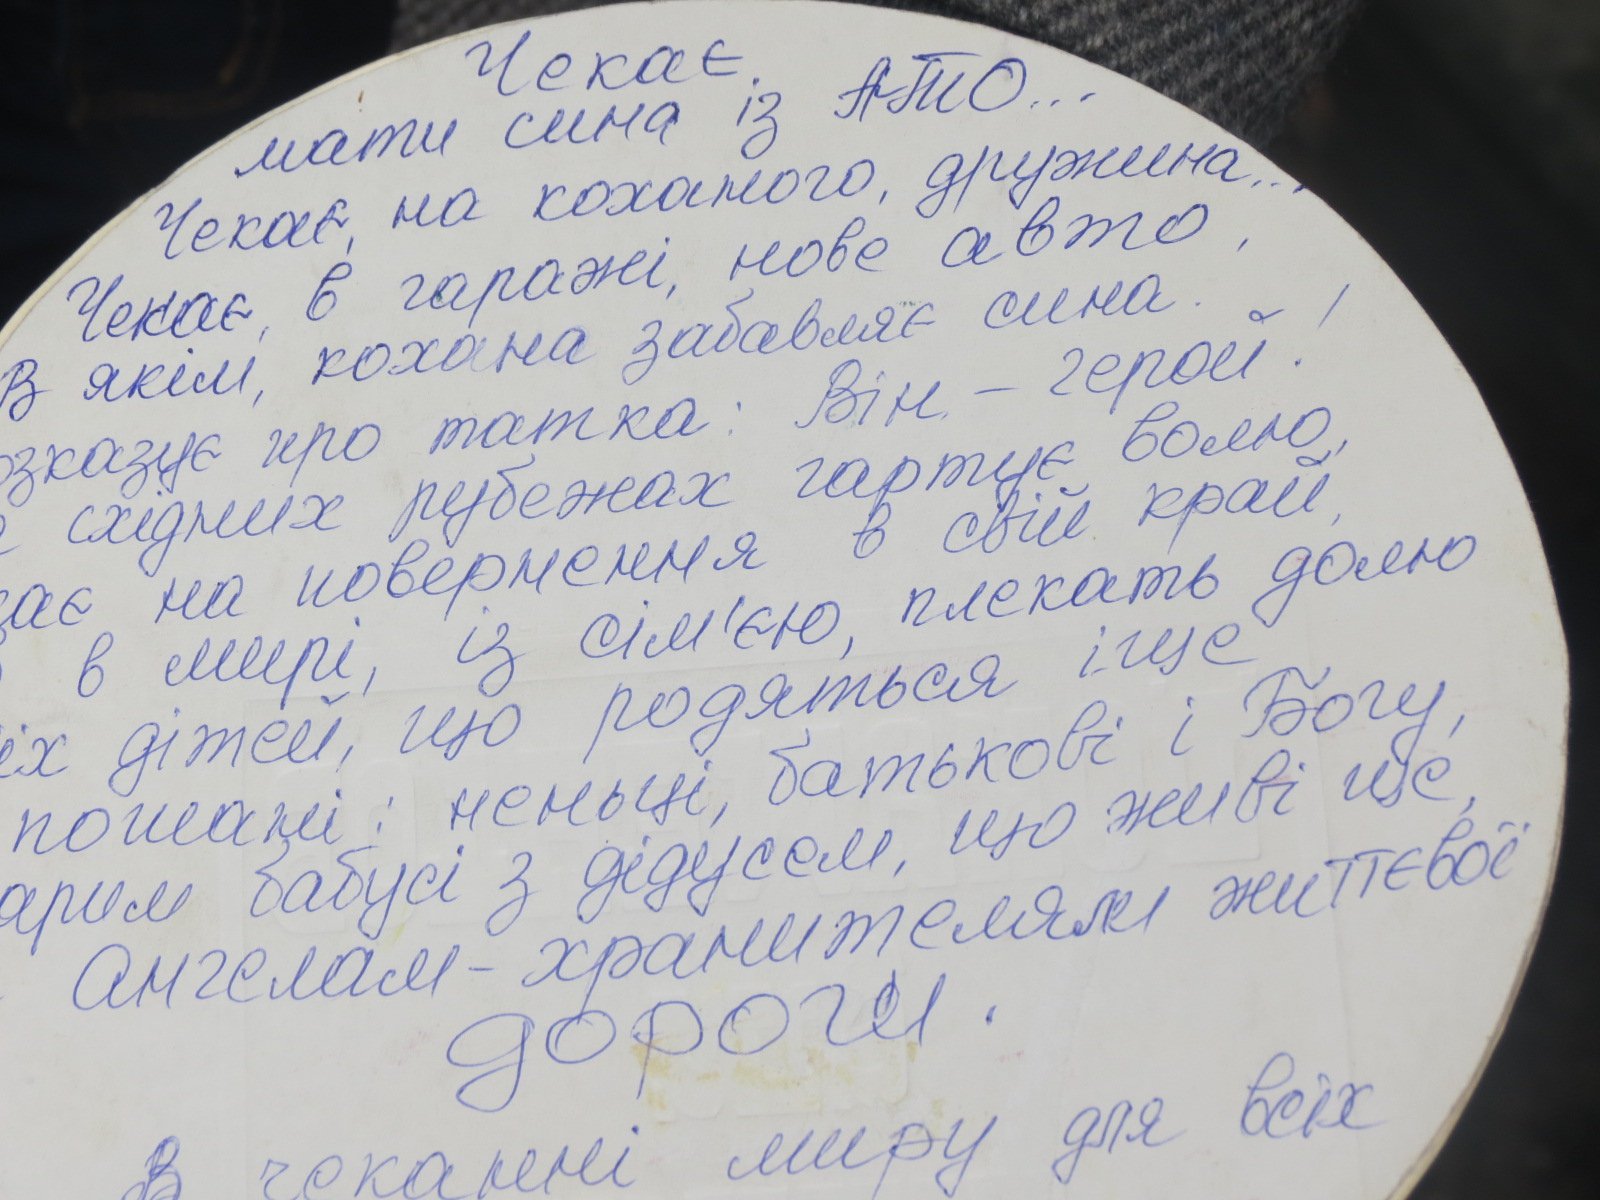 Чекає.
мати сина із АТО...
Чекає, на коханого, дружина...
Чекає, в гаражі, нове авто,
В якім, кохана забавляє сина.
озказує про татка: Він – герой!
східних рубежах гартує волю,
кає на повернення в свій край,
в мирі, із сім'єю, плекать долю
їх дітей, що родяться іще
пошані: неньці, батькові і Богу,
арим бабусі з дідусем, що живі ще,
Ангелам-хранителям життєвої
дороги.
В чеканні миру для всіх